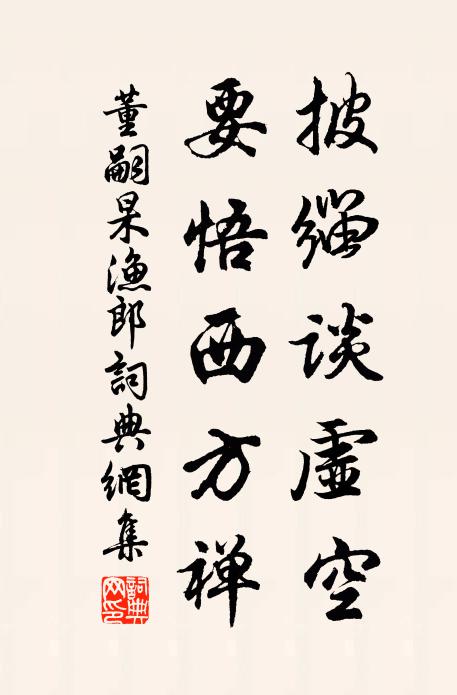 披緇谈虛空
要悟西方禅
董嗣杲渔郎詞典網集
詞典
网印